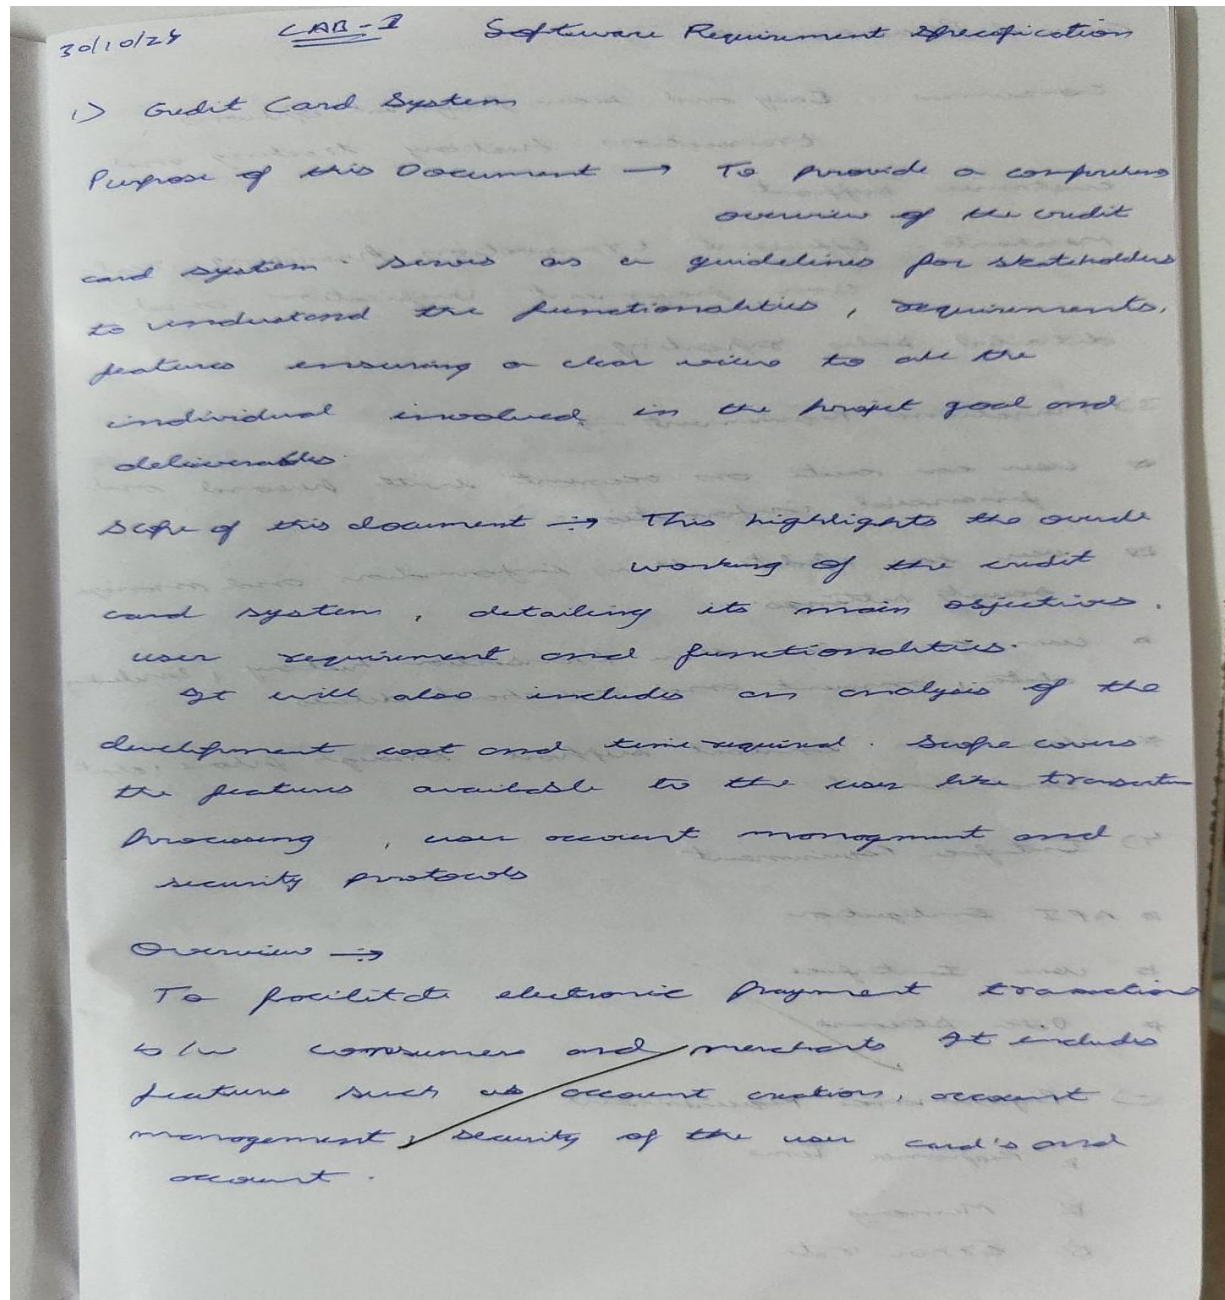 30/10/24 LAB-I Software Requirement Specification
1) Credit Card System
Purpose of this Document → To provide a comprehens
overview of the credit
card system. Serves as a guidelines for stakeholders
to understand the functionalities, requirements,
features ensuring a clear view to all the
individual involved in the project goal and
deliverables
Scope of this document → This highlights the
working of the credit
card system, detailing its main objectives.
user requirement and functionalities.
It will also includes an analysis of the
development cost and time required. Scope covers
the features available to the user like
processing, user account managment and
security protocols
Overview →
To facilitate electronic payment transaction
b/w consumers and merchants It includes
features such as account creation, account
management, security of the user card's and
account.